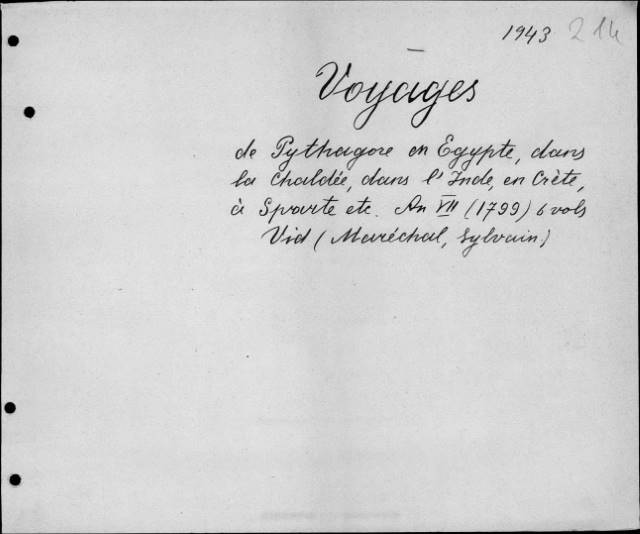 1943 214
Voyages
de Pythagore en Egypte, dans
la Chaldée, dans l'Inde, en Crète,
à Sparte etc. An VII (1799) 6 vols
Vid (Maréchal, Sylvain)